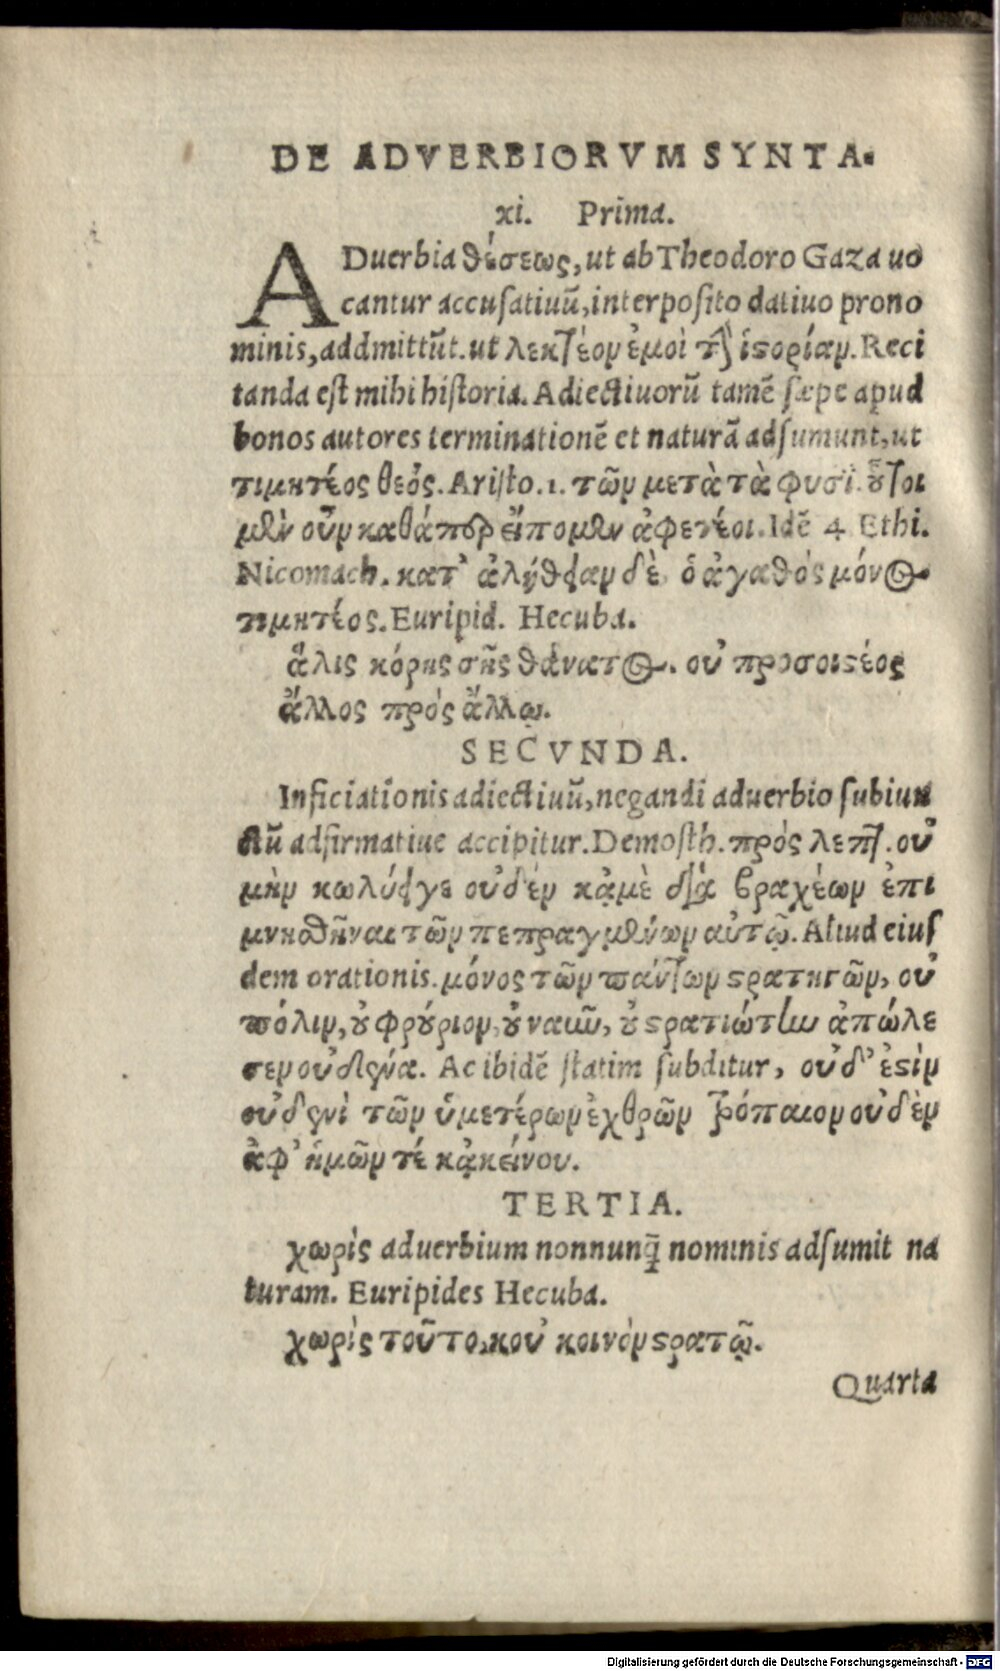 DE ADVERBIORVM SYNTA-
xi. Prima.
ADuerbia θέσεως, ut ab Theodoro Gaza uo
cantur accusatiuū, interposito datiuo prono
minis, addmittūt. ut λεκτέον ἐμοὶ τὴν ἱστορίαν. Reci
tanda est mihi historia. Adiectiuorū tamē sæpe apud
bonos autores terminationē et naturā adsumunt, ut
τιμητέος θεός. Aristo. 1. τῶν μετὰ τὰ φυσι. οὗτοι
μὲν οὖν καθάπερ εἴπομεν ἀφετέοι. Idē 4 Ethi.
Nicomach. κατ' ἀλήθειαν δὲ ὁ ἀγαθός μόνος
τιμητέος. Euripid. Hecuba.
ἅλις κόρης σῆς θάνατος. οὐ προσοιστέος
ἄλλος πρός ἄλλῳ.
SECVNDA.
Inficiationis adiectiuū, negandi aduerbio subiun
ctū adfirmatiue accipitur. Demosth. πρός λεπτ. οὐ
μὴν κωλύει γε οὐδὲν κἀμὲ διὰ βραχέων ἐπι
μνησθῆναι τῶν πεπραγμένων αὐτῷ. Aliud eius
dem orationis. μόνος τῶν πάντων στρατηγῶν, οὐ
πόλιν, οὐ φρούριον, οὐ ναῦν, οὐ στρατιώτην ἀπώλε
σεν οὐδένα. Ac ibidē statim subditur, οὐδ' ἐστὶν
οὐδενὶ τῶν ὑμετέρων ἐχθρῶν τρόπαιον οὐδὲν
ἀφ' ἡμῶν τέ κἀκείνου.
TERTIA.
χωρὶς aduerbium nonnunq̄ nominis adsumit na
turam. Euripides Hecuba.
χωρὶς τοῦτο, κοὐ κοινόν στρατῷ.
Quarta
Digitalisierung gefördert durch die Deutsche Forschungsgemeinschaft - DFG